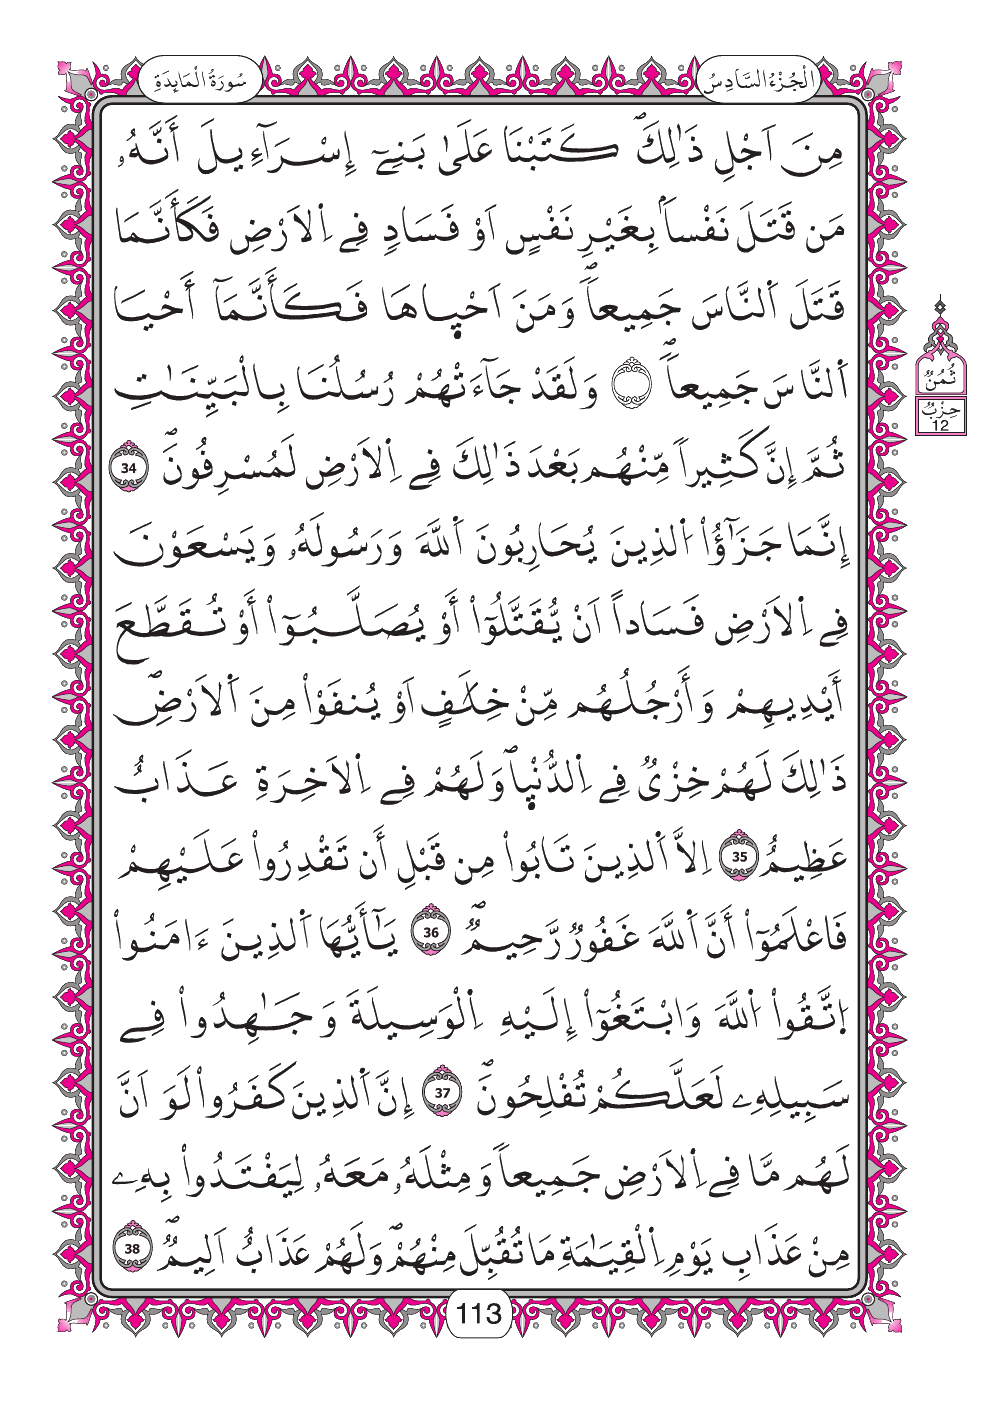 الْجُزْءُ السَّادِسُ
سُورَةُ الْمَائِدَةِ
مِنَ اَجْلِ ذَٰلِكَۖ كَتَبْنَا عَلَىٰ بَنِےٓ إِسْرَآءِيلَ أَنَّهُۥ
مَن قَتَلَ نَفْساَۢ بِغَيْرِ نَفْسٍ اَوْ فَسَادٍ فِے اِلَارْضِ فَكَأَنَّمَا
قَتَلَ اَلنَّاسَ جَمِيعاٗۖ وَمَنَ اَحْيٜاهَا فَكَأَنَّمَآ أَحْيَا
اَلنَّاسَ جَمِيعاٗۖ وَلَقَدْ جَآءَتْهُمْ رُسُلُنَا بِالْبَيِّنَٰتِ
ثُمَّ إِنَّ كَثِيراٗ مِّنْهُم بَعْدَ ذَٰلِكَ فِے اِلَارْضِ لَمُسْرِفُونَۖ 34
إِنَّمَا جَزَٰٓؤُاْ اُلذِينَ يُحَارِبُونَ اَللَّهَ وَرَسُولَهُۥ وَيَسْعَوْنَ
فِے اِلَارْضِ فَسَاداً اَنْ يُّقَتَّلُوٓاْ أَوْ يُصَلَّبُوٓاْ أَوْ تُقَطَّعَ
أَيْدِيهِمْ وَأَرْجُلُهُم مِّنْ خِلَٰفٍ اَوْ يُنفَوْاْ مِنَ اَلَارْضِۖ
ذَٰلِكَ لَهُمْ خِزْيٌ فِے اِلدُّنْيٜاۖ وَلَهُمْ فِے اِلَاخِرَةِ عَذَابٌ
عَظِيمٌ 35 اِلَّا اَلذِينَ تَابُواْ مِن قَبْلِ أَن تَقْدِرُواْ عَلَيْهِمْ
فَاعْلَمُوٓاْ أَنَّ اَللَّهَ غَفُورٌ رَّحِيمٌۖ 36 يَٰٓأَيُّهَا اَلذِينَ ءَامَنُواْ
اُتَّقُواْ اُللَّهَ وَابْتَغُوٓاْ إِلَيْهِ اِلْوَسِيلَةَ وَجَٰهِدُواْ فِے
سَبِيلِهِۦ لَعَلَّكُمْ تُفْلِحُونَۖ 37 إِنَّ اَلذِينَ كَفَرُواْ لَوَ اَنَّ
لَهُم مَّا فِے اِلَارْضِ جَمِيعاٗ وَمِثْلَهُۥ مَعَهُۥ لِيَفْتَدُواْ بِهِۦ
مِنْ عَذَابِ يَوْمِ اِلْقِيَٰمَةِ مَا تُقُبِّلَ مِنْهُمْۖ وَلَهُمْ عَذَابٌ اَلِيمٌۖ 38
ثُمُنٌ
حِزْبٌ
12
113